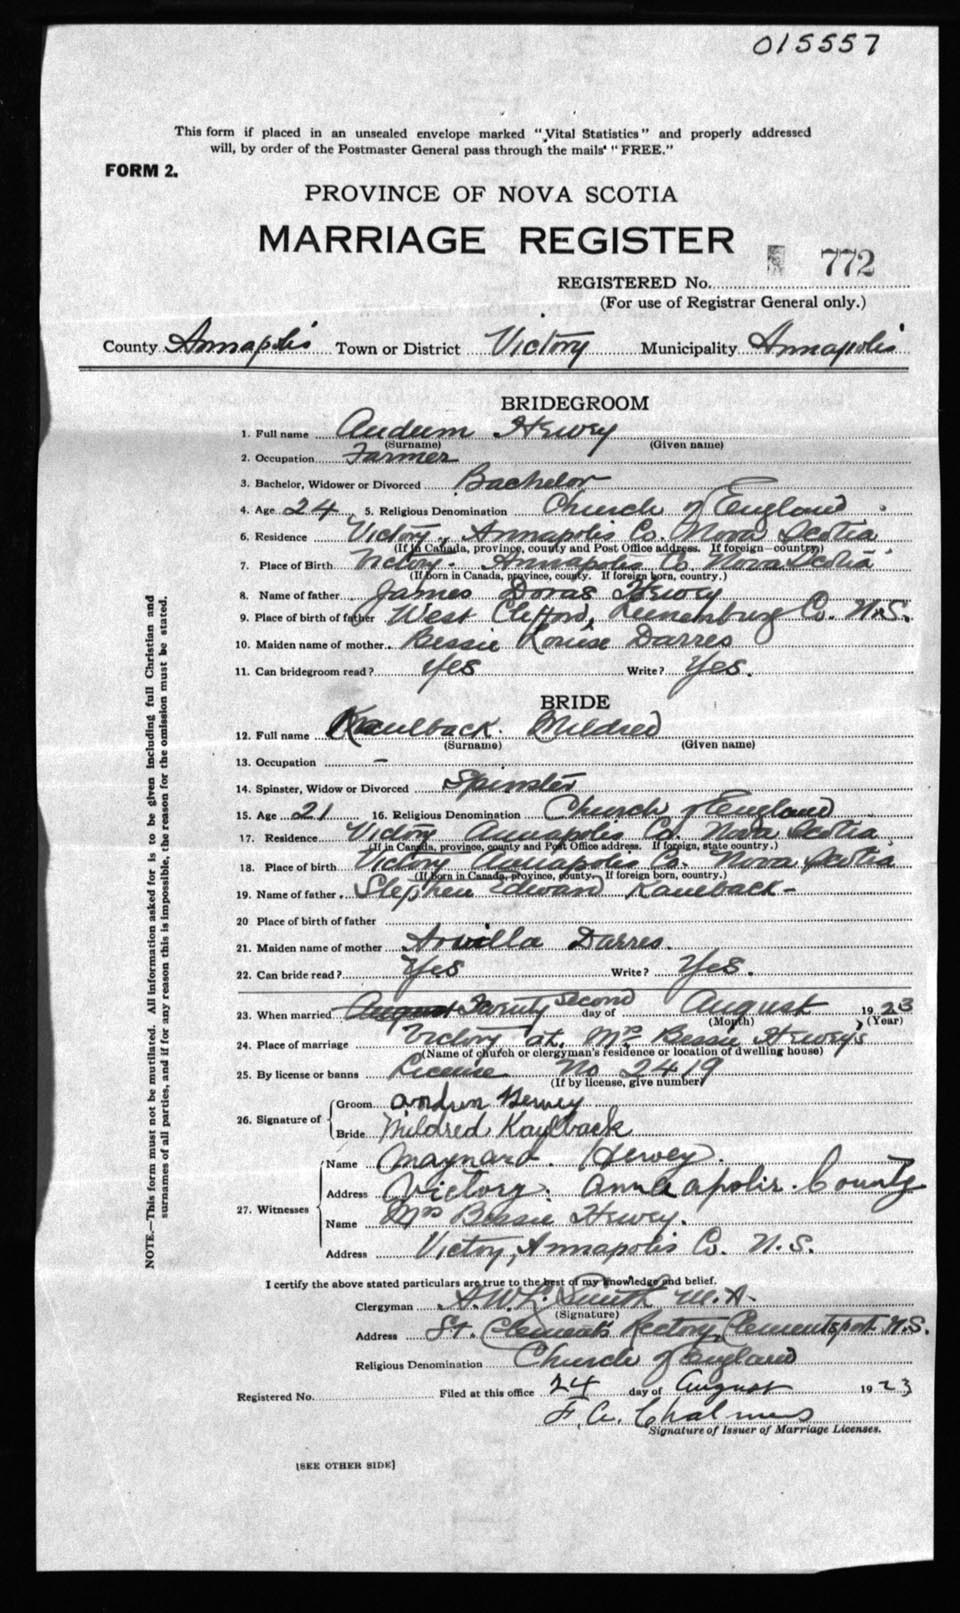 015557
This form if placed in an unsealed envelope marked "Vital Statistics" and properly addressed
will, by order of the Postmaster General pass through the mails "FREE."
FORM 2.
PROVINCE OF NOVA SCOTIA
MARRIAGE REGISTER
772
REGISTERED No.
(For use of Registrar General only.)
County Annapolis Town or District Victory Municipality Annapolis
BRIDEGROOM
1. Full name Hewey
(Surname) (Given name)
2. Occupation Farmer
3. Bachelor, Widower or Divorced Bachelor
4. Age 24 5. Religious Denomination Church of England
6. Residence Victory, Annapolis Co. Nova Scotia
(If in Canada, province, county and Post Office address. If foreign—country)
7. Place of Birth Victory - Annapolis Co Nova Scotia
(If born in Canada, province, county. If foreign born, country.)
8. Name of father James Doras Hewey
9. Place of birth of father West Clifford, Lunenburg Co. N.S.
10. Maiden name of mother Bessie Louise Darres
11. Can bridegroom read? Yes Write? Yes.
BRIDE
12. Full name Kaulback. Mildred
(Surname) (Given name)
13. Occupation -
14. Spinster, Widow or Divorced Spinster
15. Age 21 16. Religious Denomination Church of England
17. Residence Victory Annapolis Co. Nova Scotia
(If in Canada, province, county and Post Office address. If foreign, state country.)
18. Place of birth Victory Annapolis Co. Nova Scotia
(If born in Canada, province, county. If foreign born, country.)
19. Name of father Stephen Edward Kaulback-
20 Place of birth of father
21. Maiden name of mother Arvilla Darres.
22. Can bride read? Yes Write? Yes.
23. When married August Twenty second day of August 1923
(Month) (Year)
24. Place of marriage Victory at. Mrs Bessie Hewey's
(Name of church or clergyman's residence or location of dwelling house)
25. By license or banns License No 2419
(If by license, give number)
26. Signature of Groom Hervey
Bride Mildred Kaylback
27. Witnesses Name Maynard. Hervey.
Address Victory. Annapolis. County
Name Mrs Bessie Hewey.
Address Victory, Annapolis Co. N.S.
I certify the above stated particulars are true to the best of my knowledge and belief.
Clergyman A.W.L. Smith M.A.
(Signature)
Address St. Clements Rectory, Clementsport N.S.
Religious Denomination Church of England
Registered No. Filed at this office 24 day of August 1923
F. A. Chalmers
Signature of Issuer of Marriage Licenses.
[SEE OTHER SIDE]
NOTE.—This form must not be mutilated. All information asked for is to be given including full Christian and
surnames of all parties, and if for any reason this is impossible, the reason for the omission must be stated.